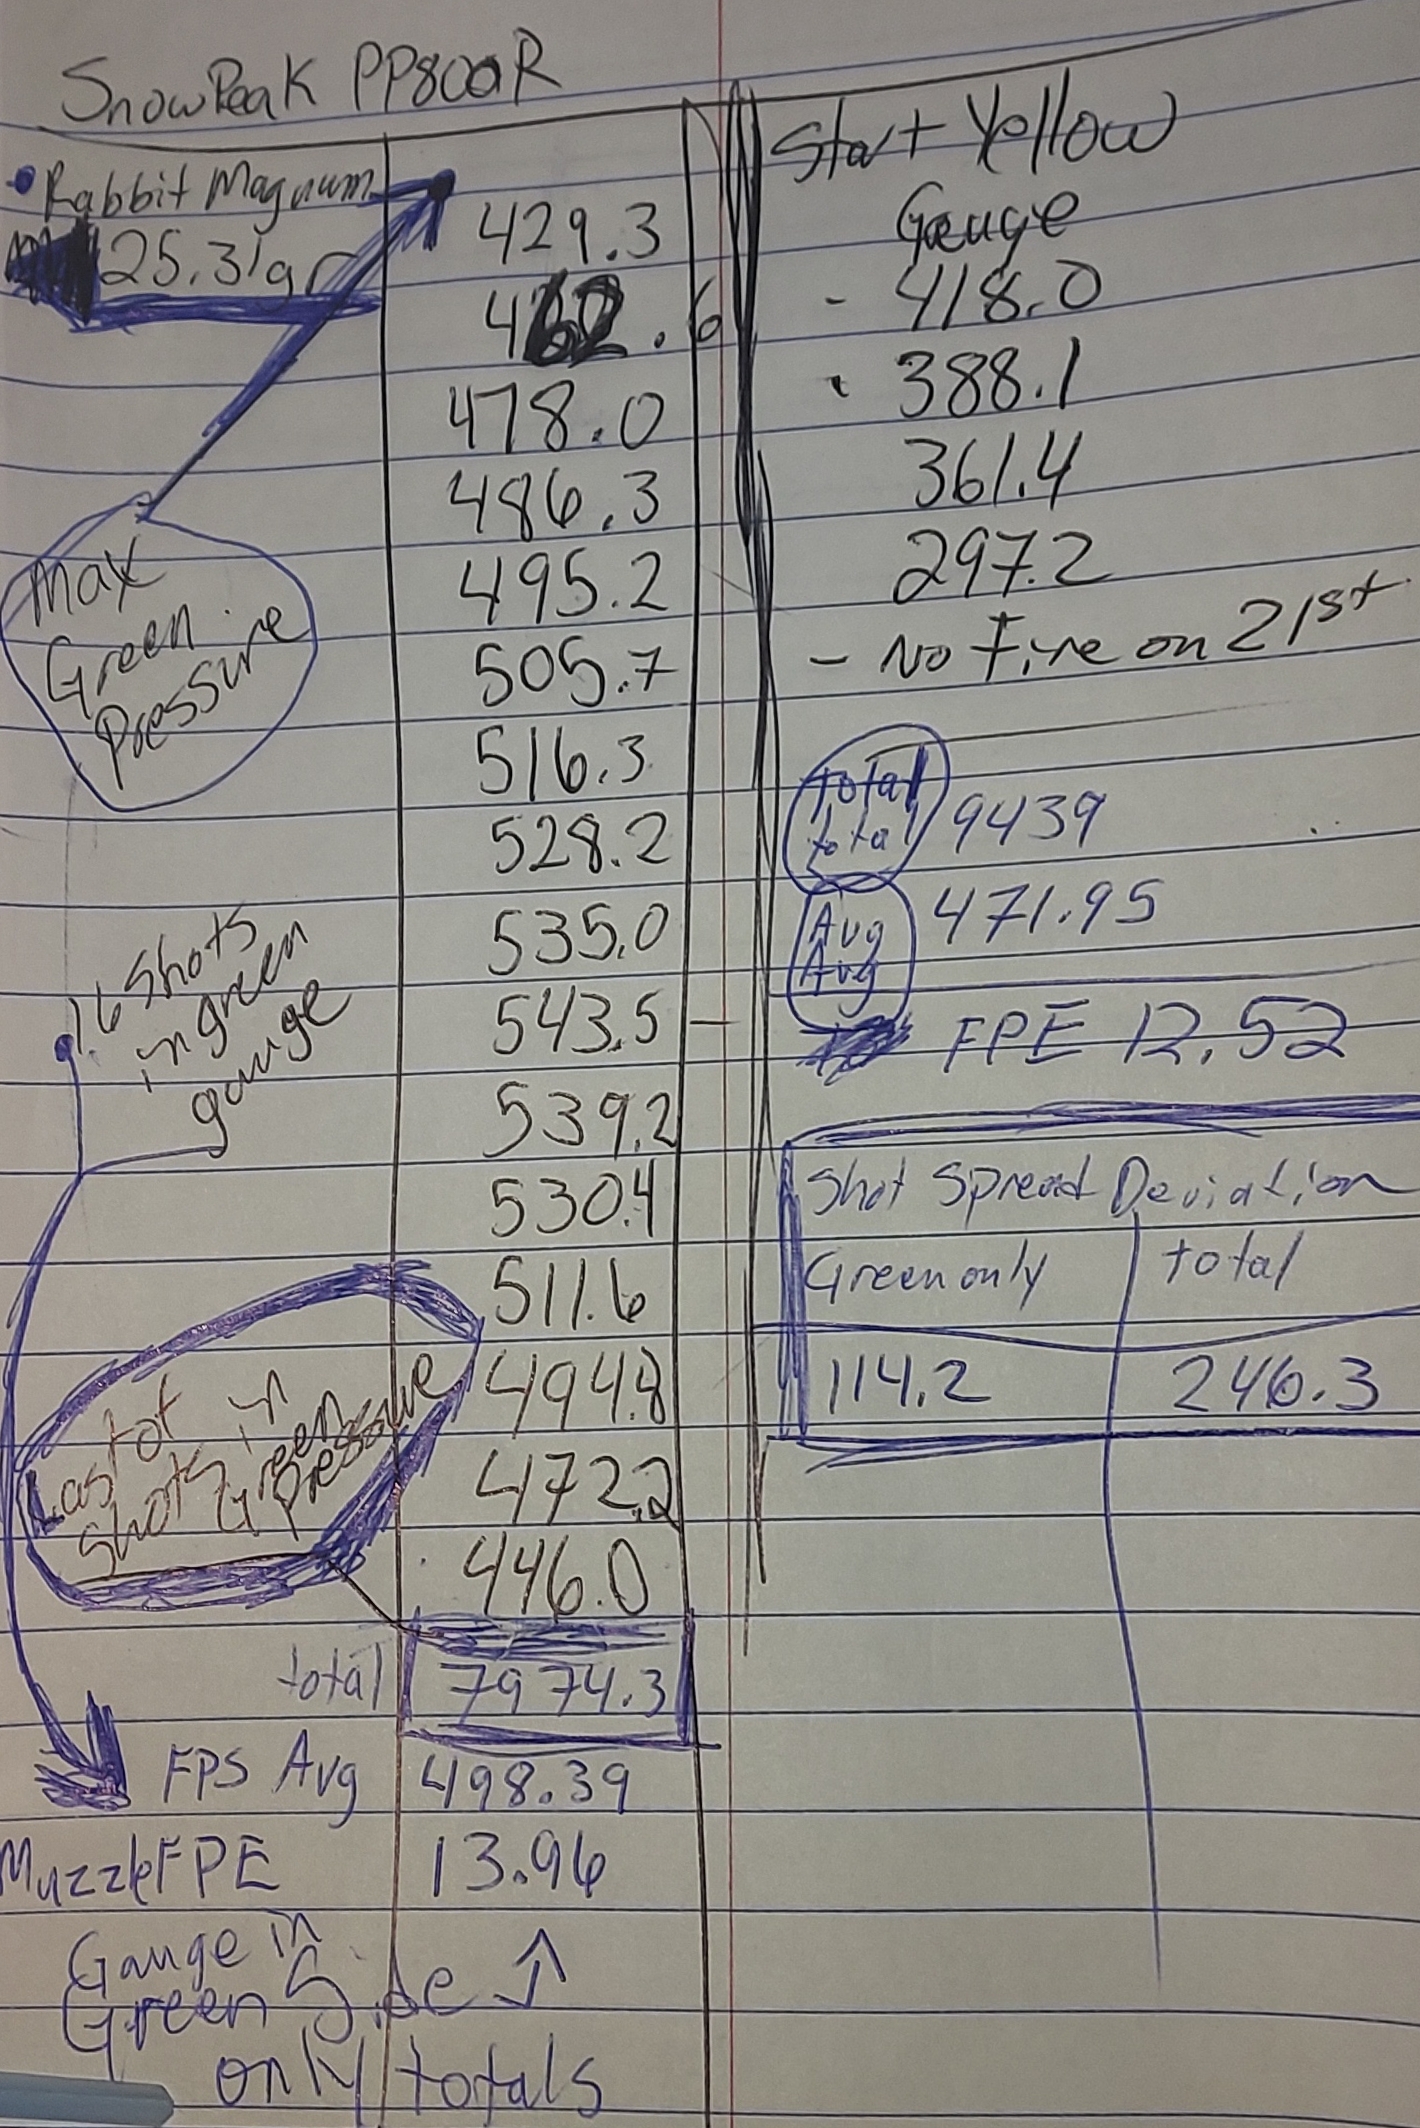 SnowPeak PP800R
• Rabbit Magnum
25.31gr
Max
Green
Pressure
16 Shots
in green
gauge
Last of
Shots in
Green
Pressure
429.3
462.6
478.0
486.3
495.2
505.7
516.3
528.2
535.0
543.5 –
539.2
530.4
511.6
494.8
472.2
446.0
total 7974.3
FPS Avg 498.39
Muzzle FPE 13.96
Gauge in
Green Side ↑
only totals
Start Yellow
Gauge
- 418.0
- 388.1
361.4
297.2
- No Fire on 21st
total
total 9439
Avg 471.95
Avg
FPE 12.52
Shot Spread Deviation
Green only total
114.2 246.3